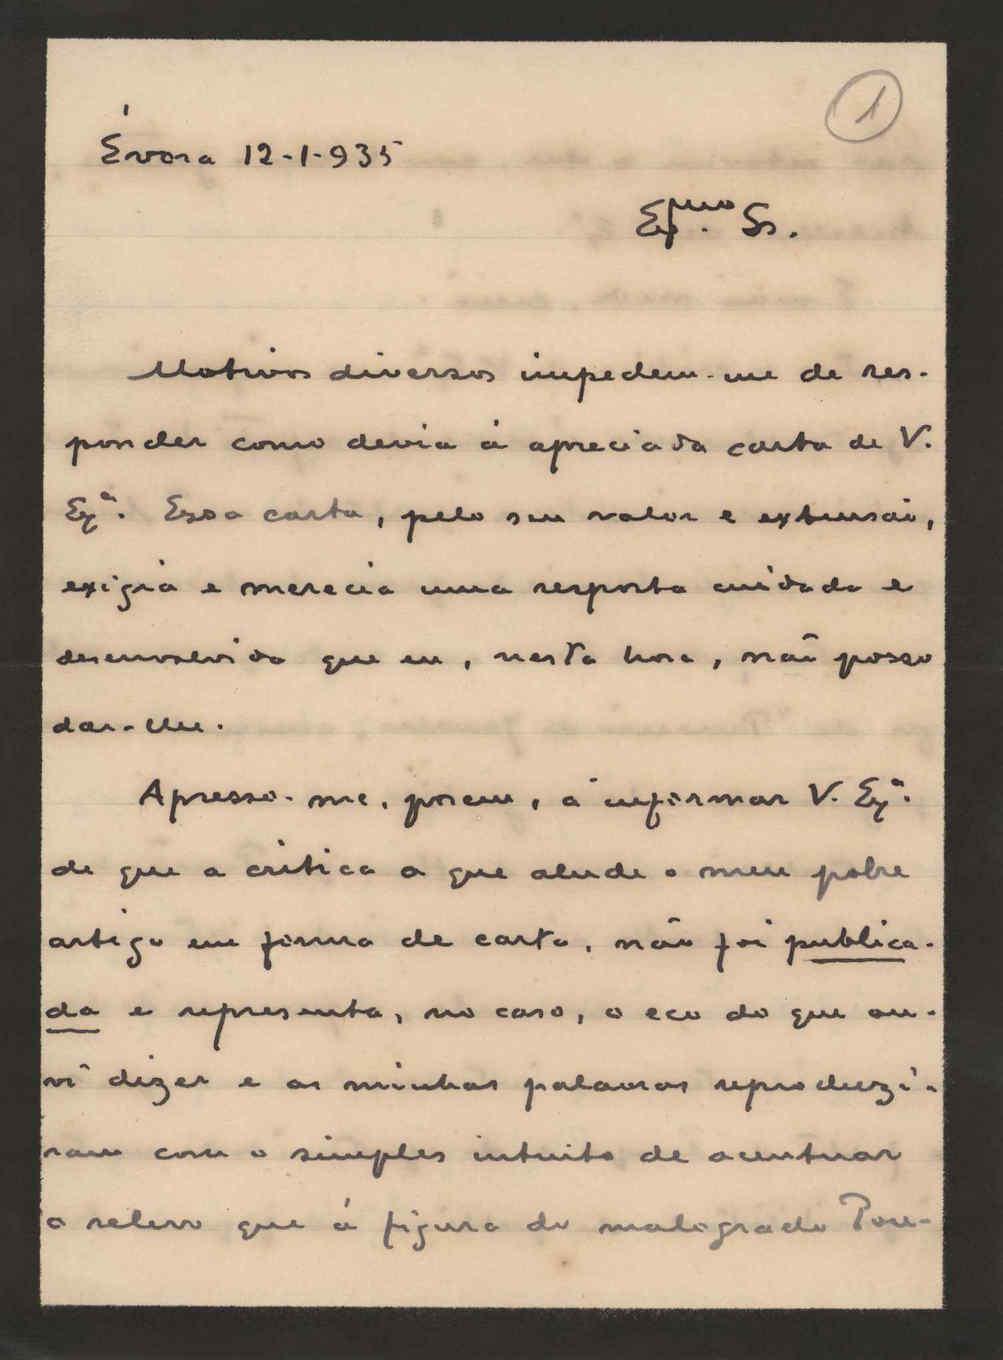 1
Évora 12-1-935
Exmo. Sr.
Motivos diversos impedem-me de res-
ponder como devia á apreciada carta de V.
Exª. Essa carta, pelo seu valor e extensão,
exigia e merecia uma resposta cuidada e
desenvolvida que eu, nesta hora, não posso
dar-lhe.
Apresso-me, porem, a informar V. Exª.
de que a critica a que alude o meu pobre
artigo em forma de carta, não foi publica-
da e representa, no caso, o eco do que ou-
vi dizer e as minhas palavras reproduzi-
ram com o simples intuito de acentuar
o relevo que á figura do malogrado Pou-